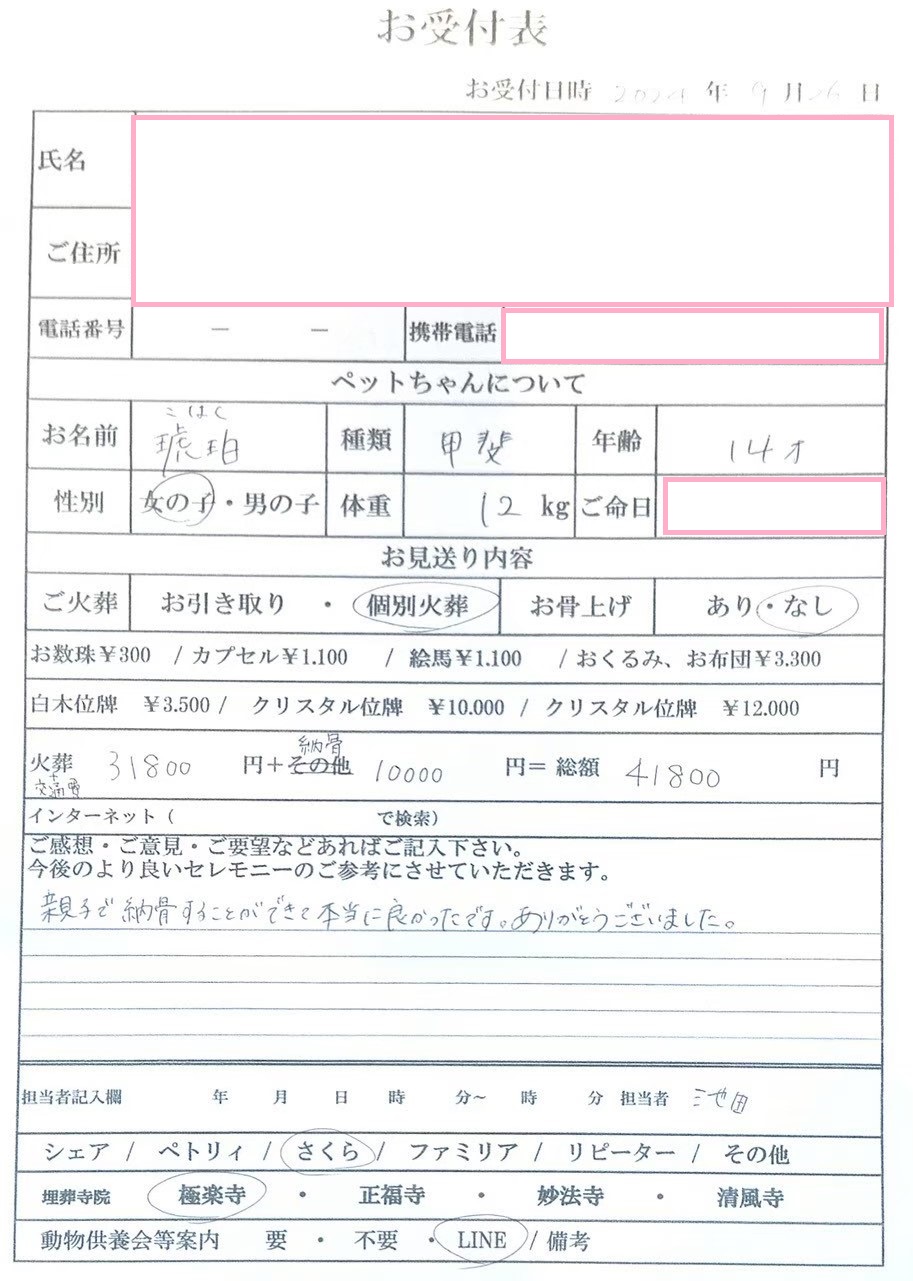 お受付表
お受付日時 2024 年 9 月 26 日
氏名
ご住所
電話番号 － － 携帯電話
ペットちゃんについて
こはく
お名前 琥珀 種類 甲斐 年齢 14才
性別 女の子・男の子 体重 12 kg ご命日
お見送り内容
ご火葬 お引き取り ・ 個別火葬 お骨上げ あり・なし
お数珠￥300 / カプセル￥1.100 / 絵馬￥1.100 / おくるみ、お布団￥3.300
白木位牌 ￥3.500 / クリスタル位牌 ￥10.000 / クリスタル位牌 ￥12.000
納骨
火葬 31800 円＋その他 10000 円＝ 総額 41800 円
+交通費
インターネット（ で検索）
ご感想・ご意見・ご要望などあればご記入下さい。
今後のより良いセレモニーのご参考にさせていただきます。
親子で納骨することができて本当に良かったです。ありがとうございました。
担当者記入欄 年 月 日 時 分～ 時 分 担当者 池田
シェア / ペトリィ / さくら / ファミリア / リピーター / その他
埋葬寺院 極楽寺 ・ 正福寺 ・ 妙法寺 ・ 清風寺
動物供養会等案内 要 ・ 不要 ・ LINE / 備考